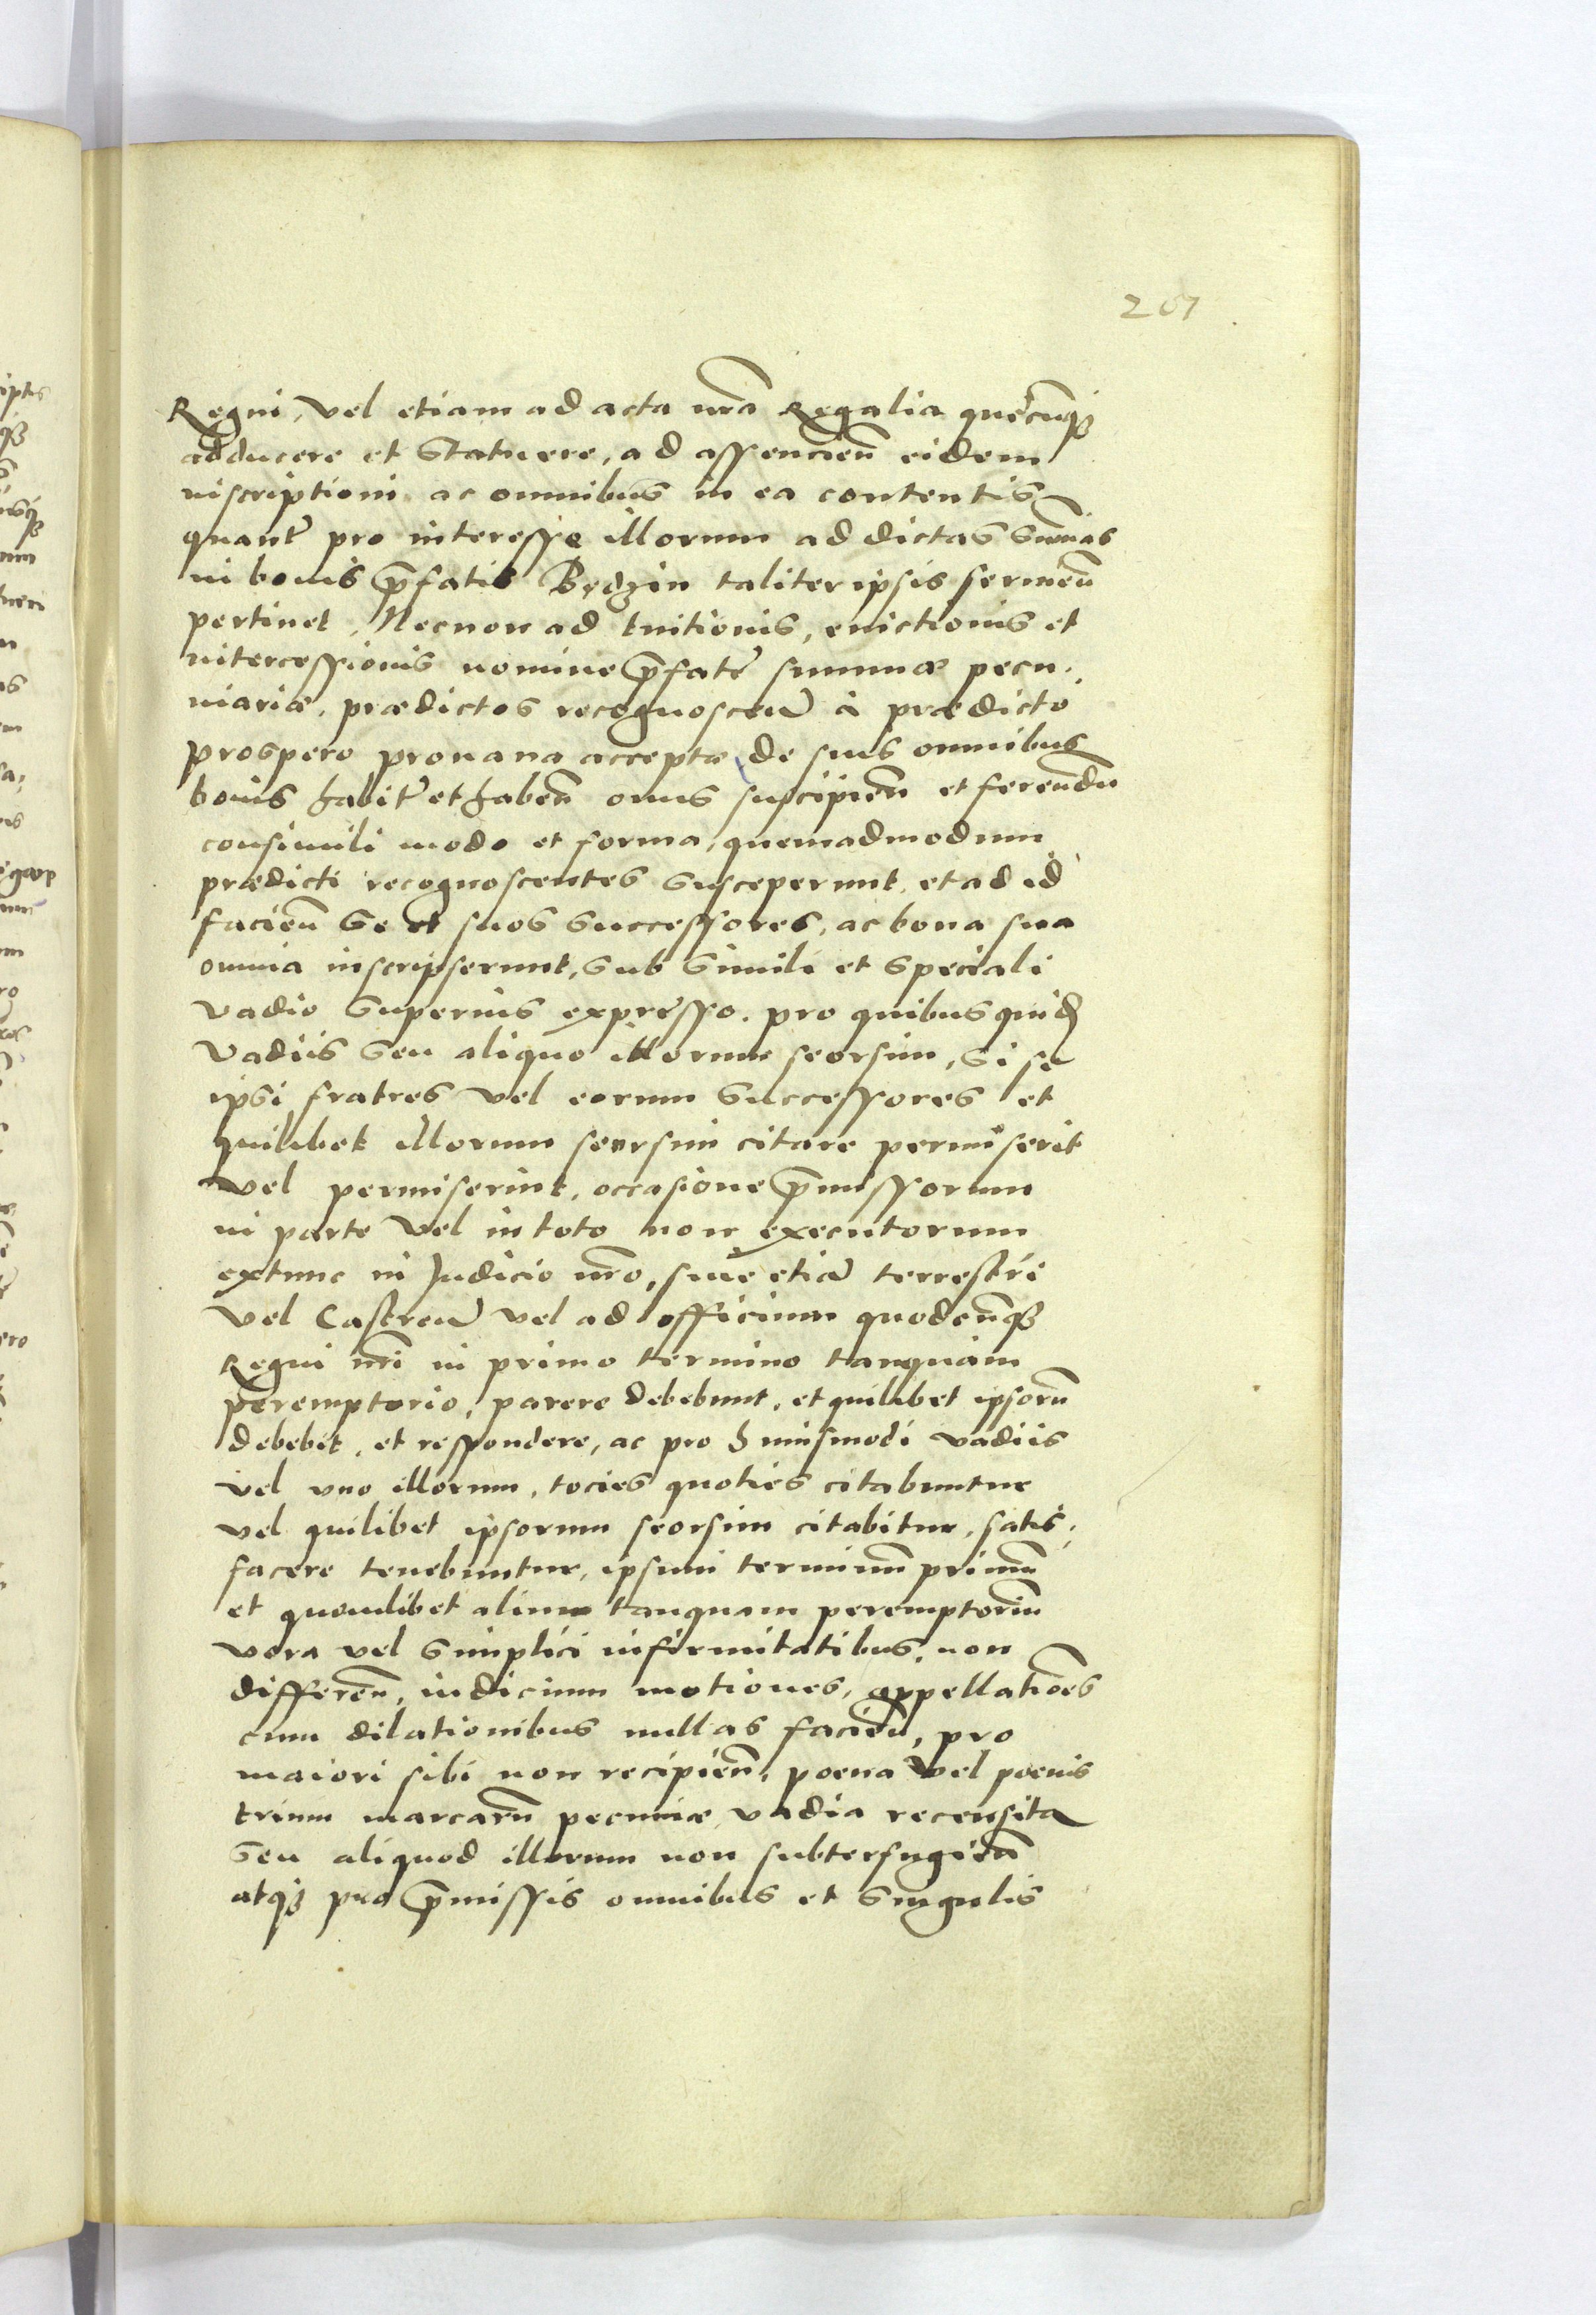 267
Regni, vel etiam ad acta nr̃a Regalia quęcunq̃
adducere et Statuere, ad assencien̄ eidem
inscriptioni ac omnibus in ea contentis
quant̃ pro interesse illorum ad dictas sum̄as
in bonis p̄fatis Bedzin taliter ipsis
pertinet, Necnon ad tuitionis, euictionis et
intercessionis nomine p̄fatę summæ pecu,
niariæ, prædictos recognoscen̄ à prædicto
Prospero prouana acceptæ, de suis omnibus
bonis habit̃ et haben̄ onus suscipien̄ et ferendu̅
consimili modo et forma, quemadmodum
prædicti recognoscentes susceperunt, et ad id
facien̄ se et suos successores, ac bona sua
omnia inscripserunt, sub simili et speciali
vadio superius expresso. pro quibus quid̃
vadiis seu aliquo illorum seorsim, si se
ipsi fratres vel eorum successores et
quilibet illorum seorsim citare permiserit
vel permiserint, occasione p̄missorum
in parte vel in toto non executorum
extunc in Judicio nr̃o, siue etia̅ terrestri
vel Castren̄ vel ad officium quodcunq̃
Regni nr̃i in primo termino tanquam
peremptorio, parere debebunt, et quilibet ipsoru̅
debebit, et respondere, ac pro huiusmodi vadiis
vel vno illorum, tocies quoties citabuntur
vel quilibet ipsorum seorsim citabitur, satis,
facere tenebuntur, ipsum terminu̅ primu̅
et quemlibet alium tanquam peremptoriu̅
vera vel simplici infirmitatibus, non
differen̄, iudicium motiones, appellatio̅es
cum dilationibus nullas facien̄, pro
maiori sibi non recipien̄, poena vel poenis
trium marcaru̅ pecuniæ, vadia recensita
seu aliquod illorum non subterfugien̄
atq̃ pro p̄missis omnibus et singulis